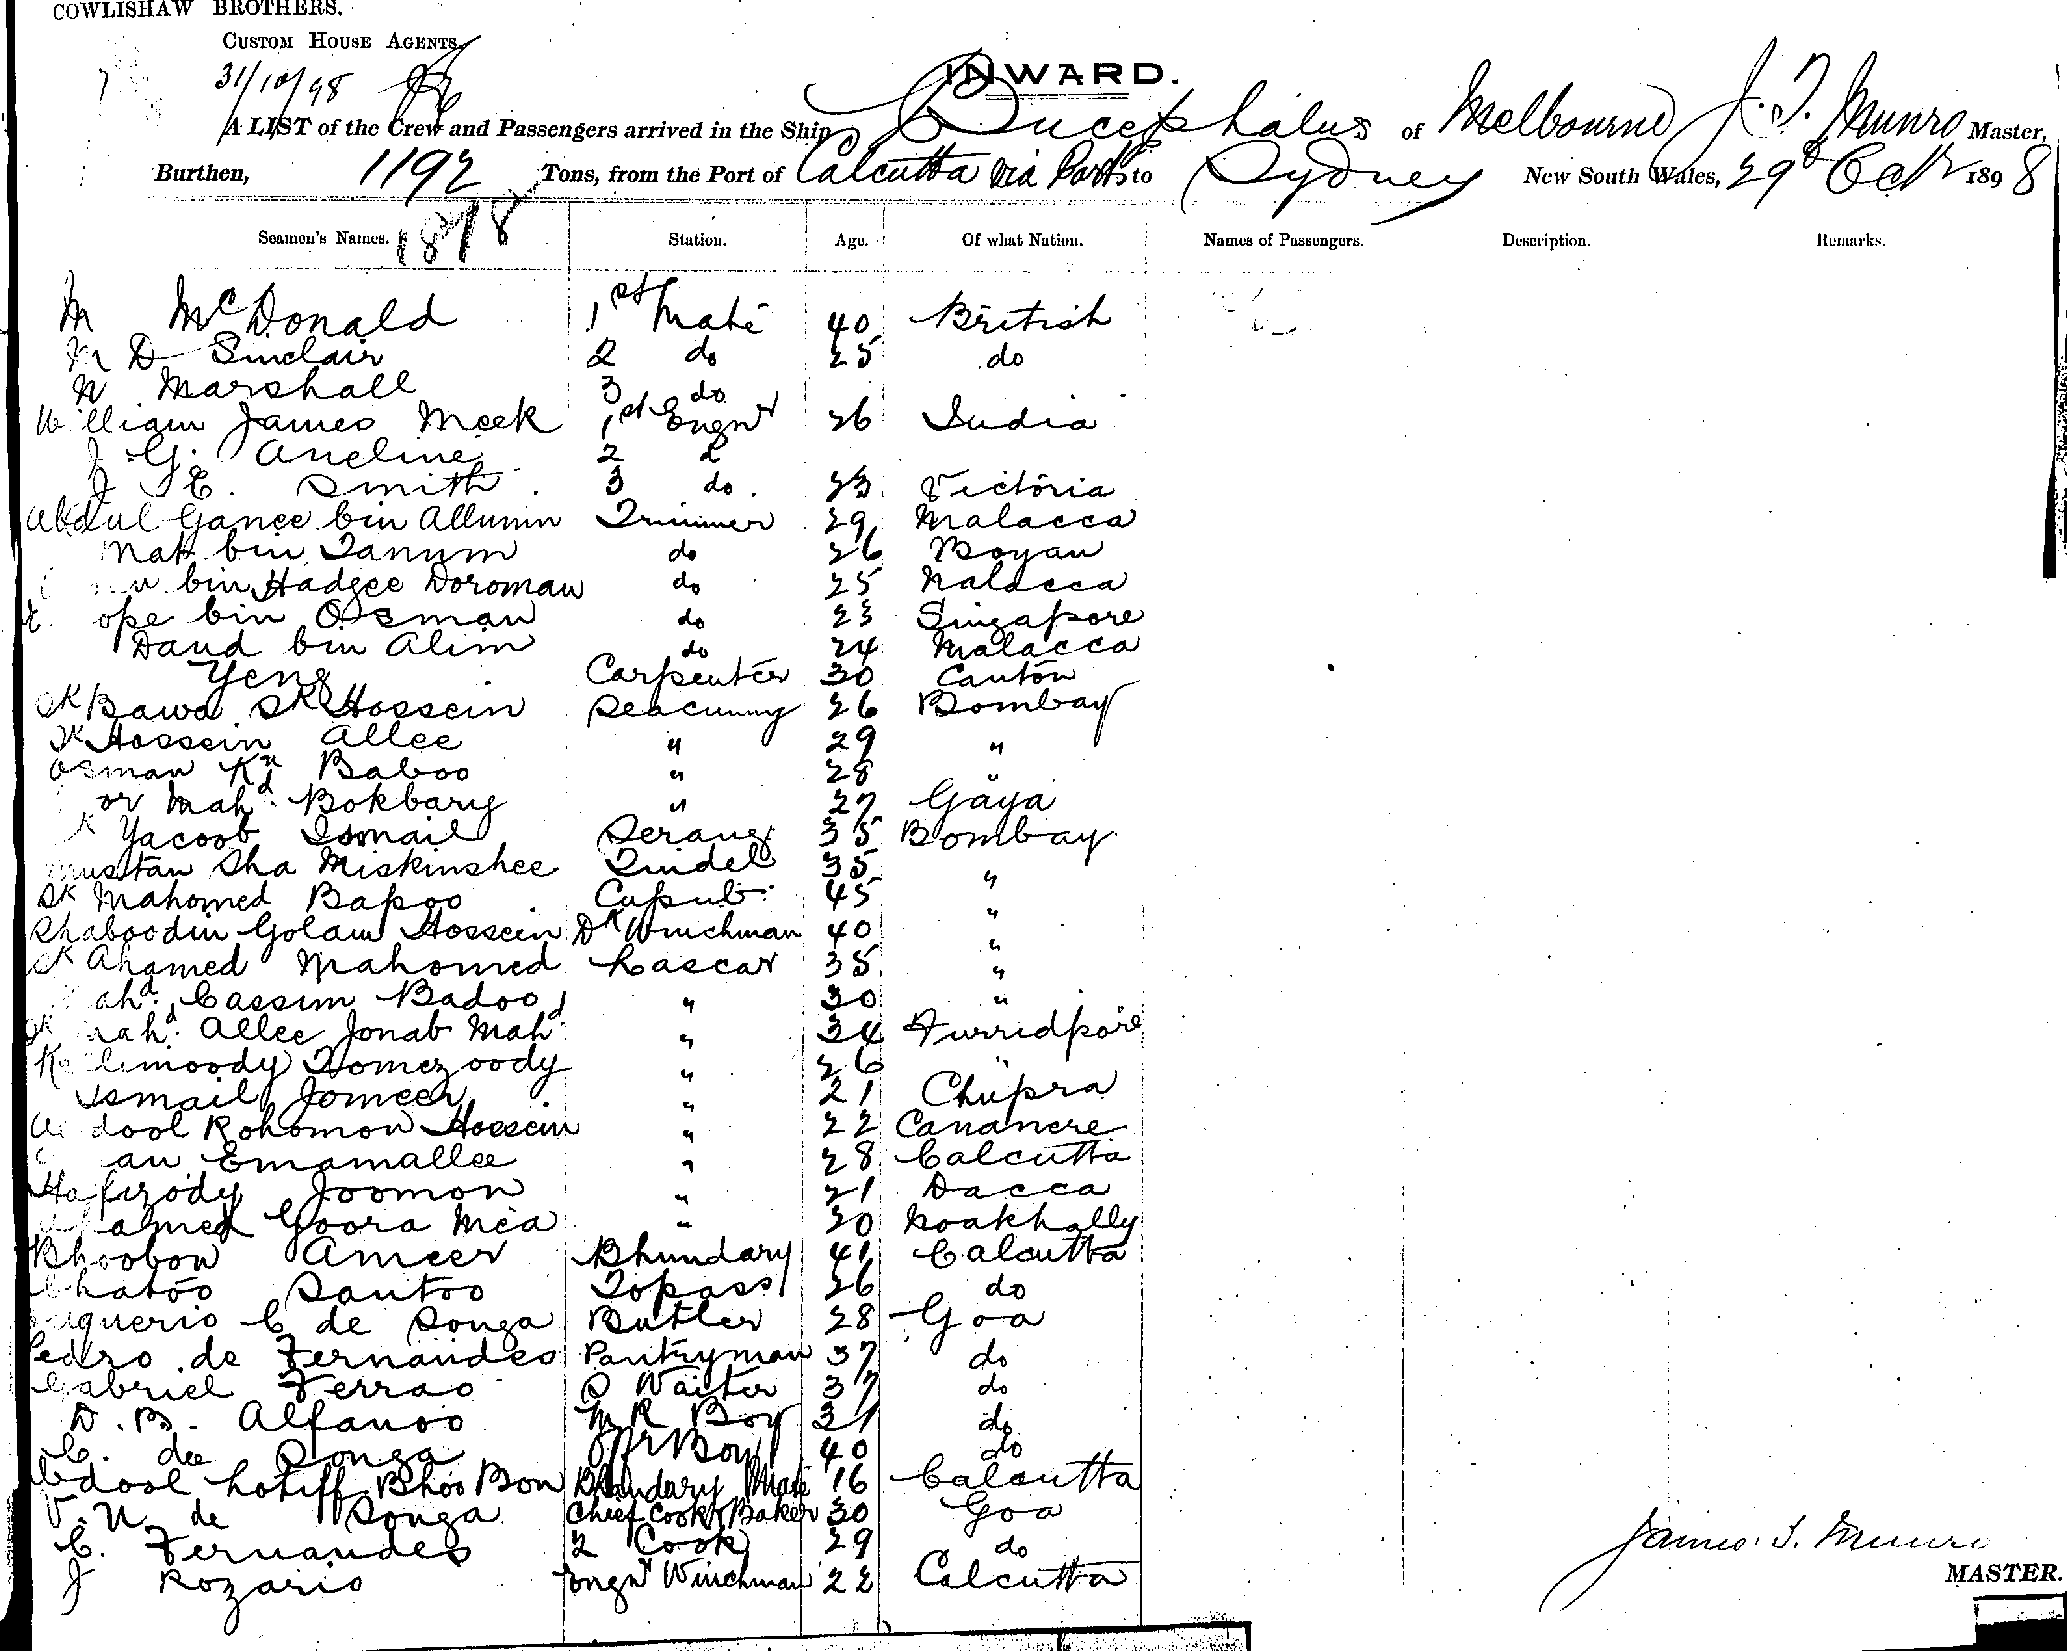 COWLISHAW BROTHERS.
CUSTOM HOUSE AGENTS
31/10/98
INWARD.
A LIST of the Crew and Passengers arrived in the Ship Bucephalus of Melbourne J. T. Munro Master,
Burthen, 1192 Tons, from the Port of Calcutta via Ports to Sydney New South Wales, 29th Octr 1898
1898
Seamen's Names. Station. Age. Of what Nation. Names of Passengers. Description. Remarks.
M McDonald 1st Mate 40 British
M D Sinclair 2 do 25 do
N Marshall 3 do
William James Meek 1st Engnr 26 India
J G. Aneline 2
J E. Smith 3 do. 23 Victoria
Abdul Ganee bin Allumin Trimmer 29 Malacca
Mat bin Tanum do 26 Boyan
bin Hadgee Doroman do 25 Malacca
ope bin Osman do 23 Singapore
Daud bin Alim do 24 Malacca
Yeng Carpenter 30 Canton
Sk Bawa Sk Hossein Seacunny 26 Bombay
Sk Hossein Allee " 29 "
Osman Kn Baboo " 28 "
or Mahd. Bokbary " 27 Gaya
k Yacoob Ismail Serang 35 Bombay
Mustan Sha Miskinshee Tindel 35 "
Sk Mahomed Bapoo 45 "
Shaboodin Golam Hossein Dk Winchman 40 "
Sk Ahamed Mahomed Lascar 35 "
ahd. Cassim Badoo " 30 "
Sk ahd. Allee Jonab Mahd " 34 Furridpore
limoody Tomezoody " 26 "
Ismail Jomeer " 21 Chupra
dool Rohomon Hossein " 22 Cananere
an Emamallee " 28 Calcutta
Hafizody Joomon " 21 Dacca
amed Goora Mea " 20 Noakhally
Bhoobon Ameer Bhundary 41 Calcutta
Chatoo Santoo Topass 26 do
uguerio C de Souza Butler 28 Goa
Pedro de Fernandes Pantryman 37 do
Gabriel Ferrao S Waiter 37 do
D. B. Alfanso M R Boy 21 do
C. de Souza Boy 40 do
Abdool Lotiff Bhoo Bon Bhundary Mate 16 Calcutta
V. N de Souza Chief Cook & Baker 30 Goa
C. Fernandes 2 Cook 29 do
J Rozario Engnr Winchman 22 Calcutta
James T. Munro
MASTER.